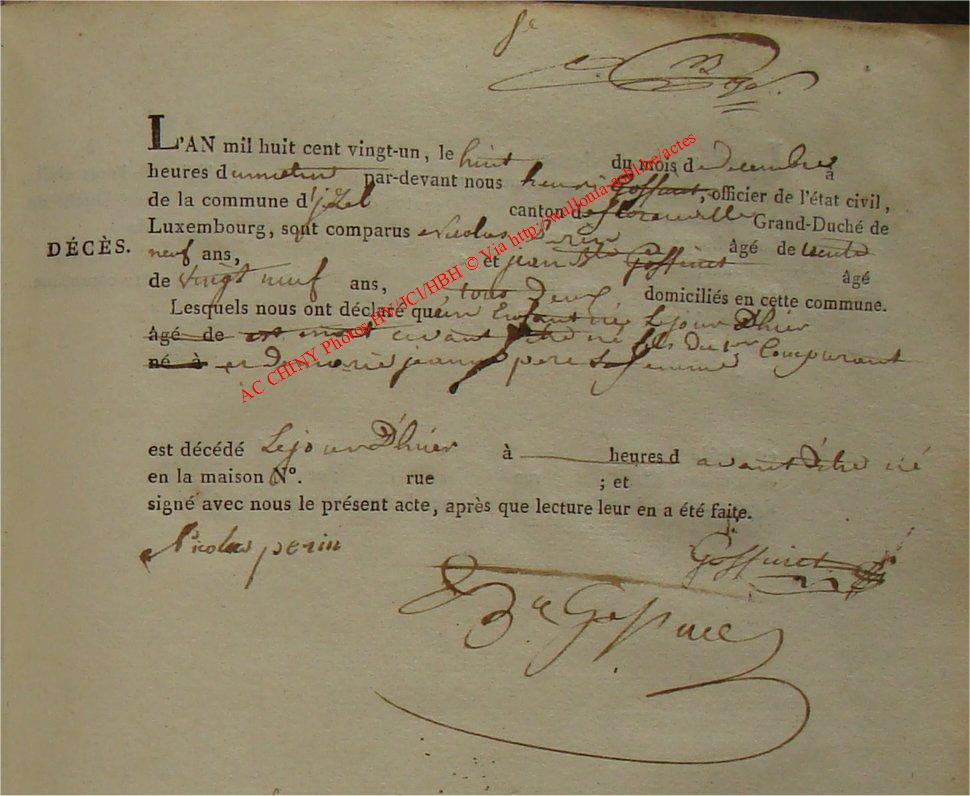 8e
L'AN mil huit cent vingt-un, le huit du mois de decembre à
heures du matin par-devant nous henri Goffinet, officier de l'état civil,
de la commune d'jzel canton de florenville Grand-Duché de
Luxembourg, sont comparus Nicolas Perin âgé de trente
DÉCÈS.
neuf ans, et jean Bte Goffinet âgé
de vingt neuf ans, tous deux domiciliés en cette commune.
Lesquels nous ont déclaré qu'un Enfant né Le jour D'hier
âgé de est mort avant d'être né fils du 1er Comparant
né à et de marie jeanne pere sa femme
est décédé Le jour D'hier à heures d avant d'être né
en la maison N°. rue ; et
signé avec nous le présent acte, après que lecture leur en a été faite.
Nicolas perin Goffinet
Bte Goffinet
AC CHINY Photos HV/JCl/HBH © Via http://wallonia-asbl.be/actes